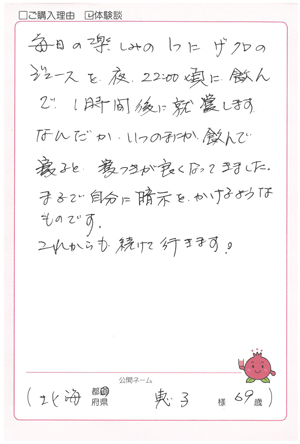 □ご購入理由 ☑体験談
毎日の楽しみの1つにザクロの
ジュースを夜、22:00頃に飲ん
で、1時間後に就寝します
なんだか、いつのまにか飲んで
寝ると、寝つきが良くなってきました。
まるで自分に暗示をかけるような
ものです。
これからも続けて行きます。
公開ネーム
(北海 都道府県 恵子 様 69歳)